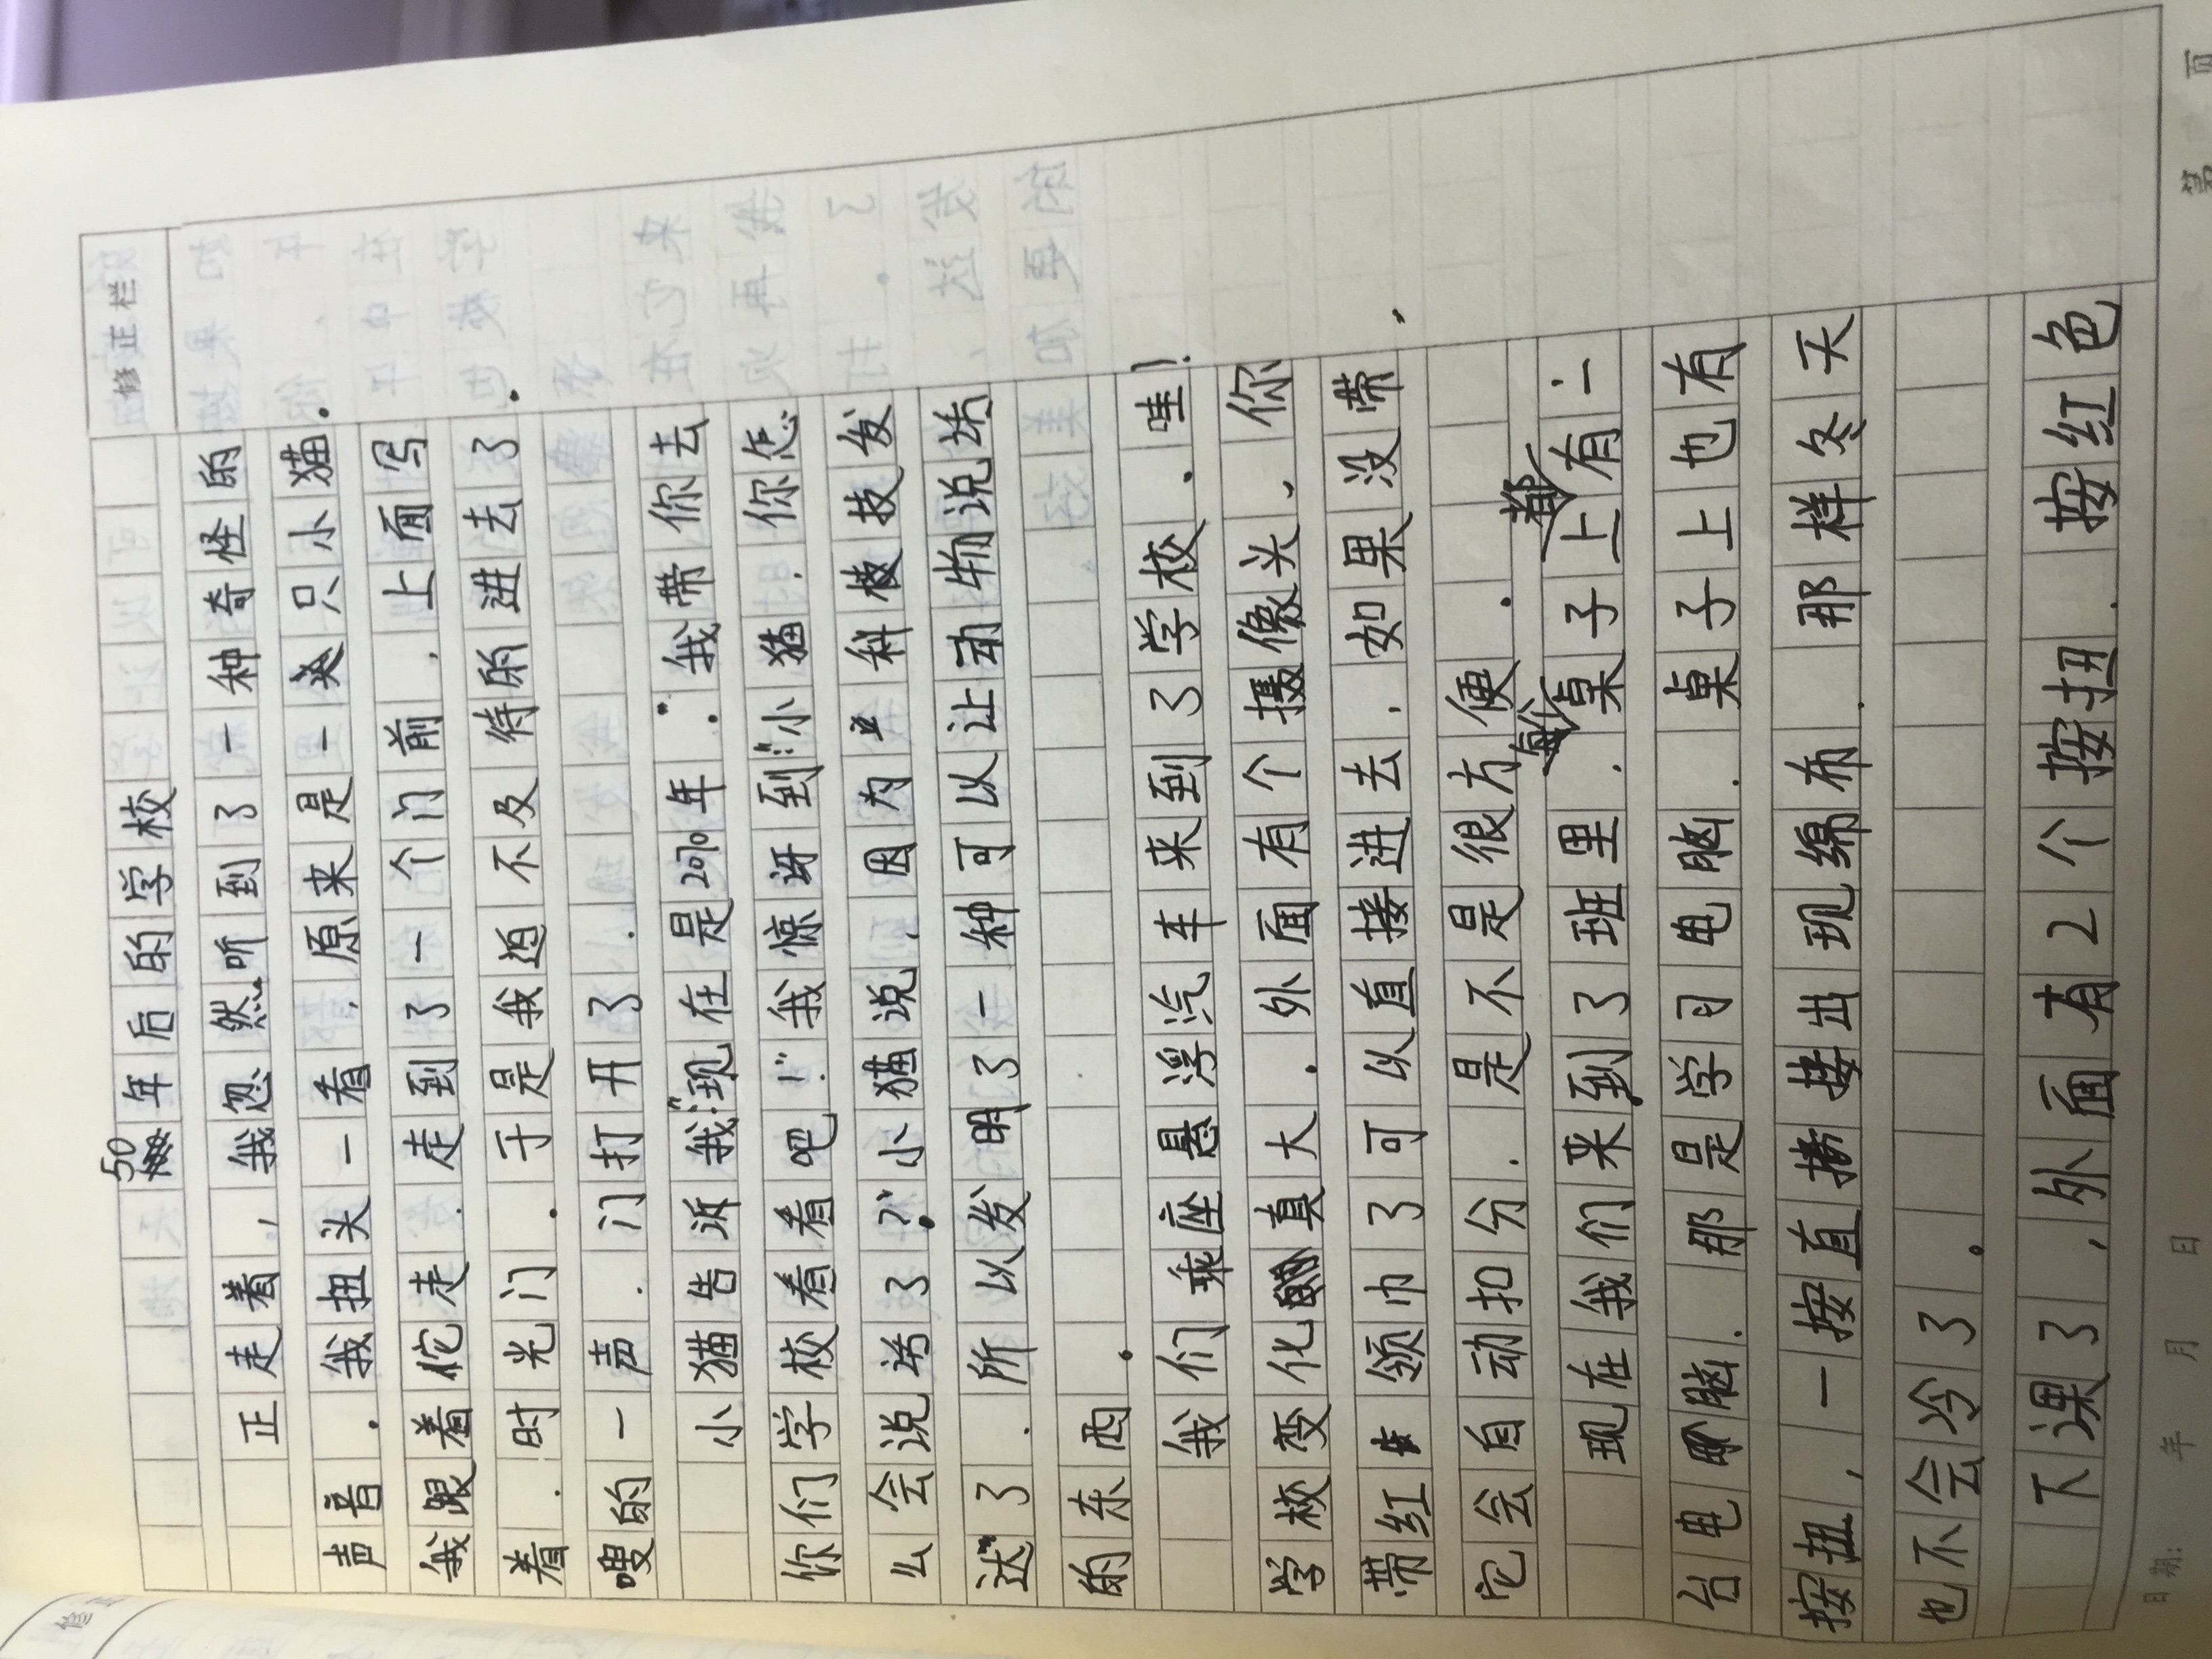 修正栏
50年后的学校
正走着，我忽然听到了一种奇怪的
声音。我扭头一看，原来是一只小猫。
我跟着佗走，走到了一个门前，上面写
着，时光门。于是我迫不及待的进去了。
嗖的一声，门打开了。
小猫告诉我:"现在是2070年。"我带你去
你们学校看看吧!"我惊讶到:"小猫，你怎
么会说话了?"小猫说，因为科技发
达了，所以发明了一种可以让动物说话
的东西。
我们乘座悬浮汽车来到了学校，哇！
学校变化真大。外面有个摄像头，你
带红领巾了可以直接进去，如果没带，
它会自动扣分，是不是很方便。
现在我们来到了班里，每桌子上都有一
台电脑，那是学习电脑，桌子上也有
按扭，一按直接出现绵布，那样冬天
也不会冷了。
下课了，外面有2个按扭，按红色
日期： 年 月 日 第 页